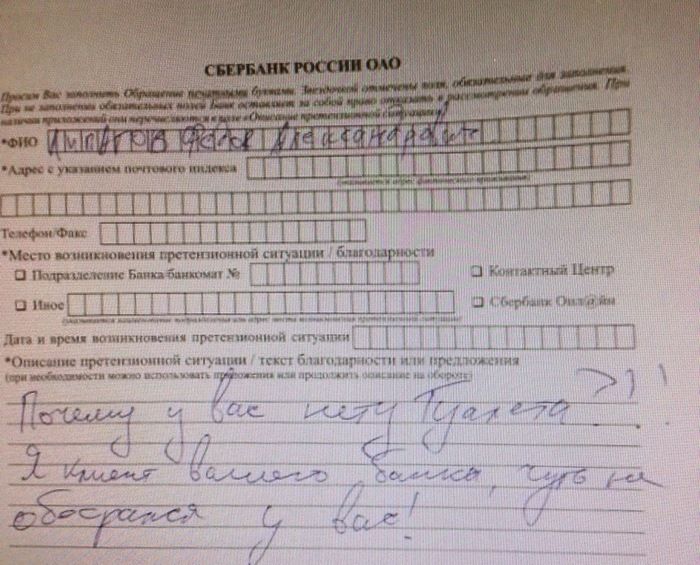 СБЕРБАНК РОССИИ ОАО
Просим Вас заполнить Обращение печатными буквами. Звездочкой отмечены поля, обязательные для заполнения.
При не заполнении обязательных полей Банк оставляет за собой право отказать в рассмотрении обращения. При
наличии приложений они перечисляются в поле «Описание претензионной ситуации»
*ФИО
*Адрес с указанием почтового индекса
(указывается адрес фактического проживания)
Телефон/Факс
*Место возникновения претензионной ситуации / благодарности
Подразделение Банка/банкомат № Контактный Центр
Иное Сбербанк Онл@йн
(указывается наименование подразделения или адрес места возникновения претензионной ситуации)
Дата и время возникновения претензионной ситуации
*Описание претензионной ситуации / текст благодарности или предложения
(при необходимости можно использовать приложения или продолжить описание на обороте)
Почему у вас нету Туалета ?!!
Я клиент вашего банка, чуть не
обосрался у вас!